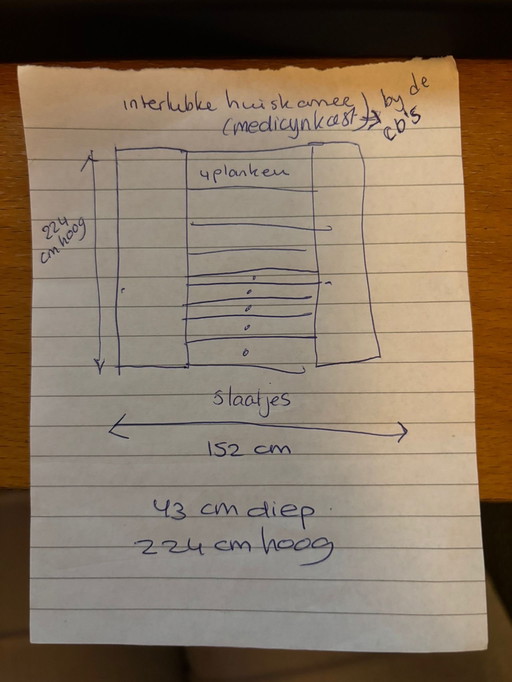 interlubke huiskamee
(medicynkast) → by de cd's
4 planken
224
cm hoog
5 laatjes
152 cm
43 cm diep
224 cm hoog